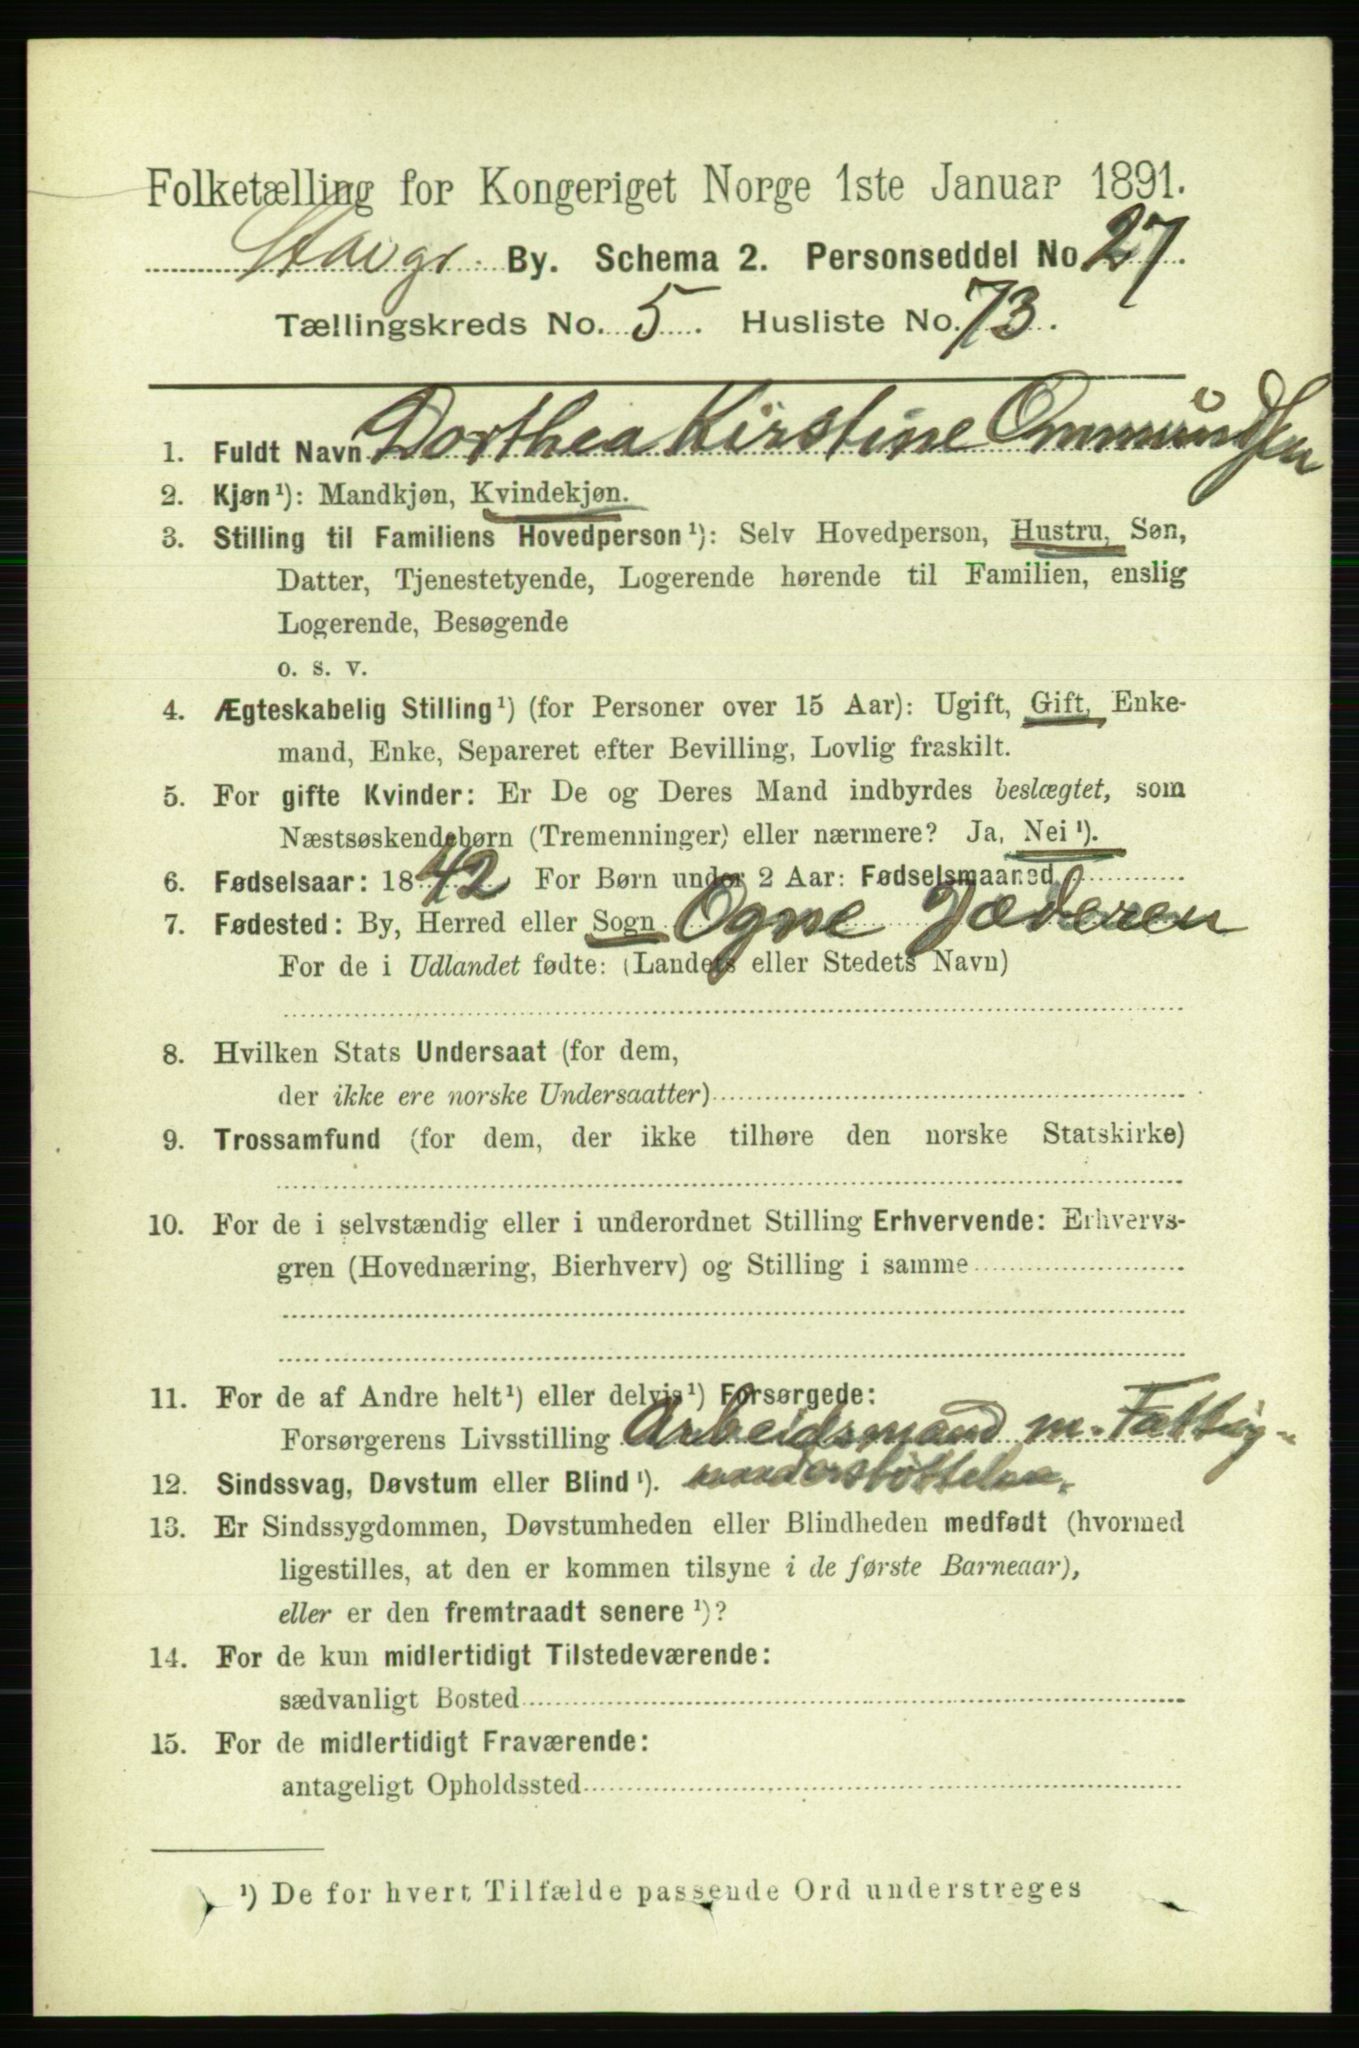 Folketælling for Kongeriget Norge 1ste Januar 1891.
Stavgr. By. Schema 2. Personseddel No 27.
Tællingskreds No. 5. Husliste No. 73.
1. Fuldt Navn Dorthea Kirstine Ommundsen
2. Kjøn¹): Mandkjøn, Kvindekjøn.
3. Stilling til Familiens Hovedperson¹): Selv Hovedperson, Hustru, Søn,
Datter, Tjenestetyende, Logerende hørende til Familien, enslig
Logerende, Besøgende
o. s. v.
4. Ægteskabelig Stilling¹) (for Personer over 15 Aar): Ugift, Gift, Enke-
mand, Enke, Separeret efter Bevilling, Lovlig fraskilt.
5. For gifte Kvinder: Er De og Deres Mand indbyrdes beslægtet, som
Næstsøskendebørn (Tremenninger) eller nærmere? Ja, Nei¹).
6. Fødselsaar: 1842 For Børn under 2 Aar: Fødselsmaaned
7. Fødested: By, Herred eller Sogn Ogne Jæderen
For de i Udlandet fødte: (Landets eller Stedets Navn)
8. Hvilken Stats Undersaat (for dem,
der ikke ere norske Undersaatter)
9. Trossamfund (for dem, der ikke tilhøre den norske Statskirke)
10. For de i selvstændig eller i underordnet Stilling Erhvervende: Erhvervs-
gren (Hovednæring, Bierhverv) og Stilling i samme
11. For de af Andre helt¹) eller delvis¹) Forsørgede:
Forsørgerens Livsstilling Arbeidsmand m. Fattig-
12. Sindssvag, Døvstum eller Blind¹). understøttelse.
13. Er Sindssygdommen, Døvstumheden eller Blindheden medfødt (hvormed
ligestilles, at den er kommen tilsyne i de første Barneaar),
eller er den fremtraadt senere¹)?
14. For de kun midlertidigt Tilstedeværende:
sædvanligt Bosted
15. For de midlertidigt Fraværende:
antageligt Opholdssted
¹) De for hvert Tilfælde passende Ord understreges